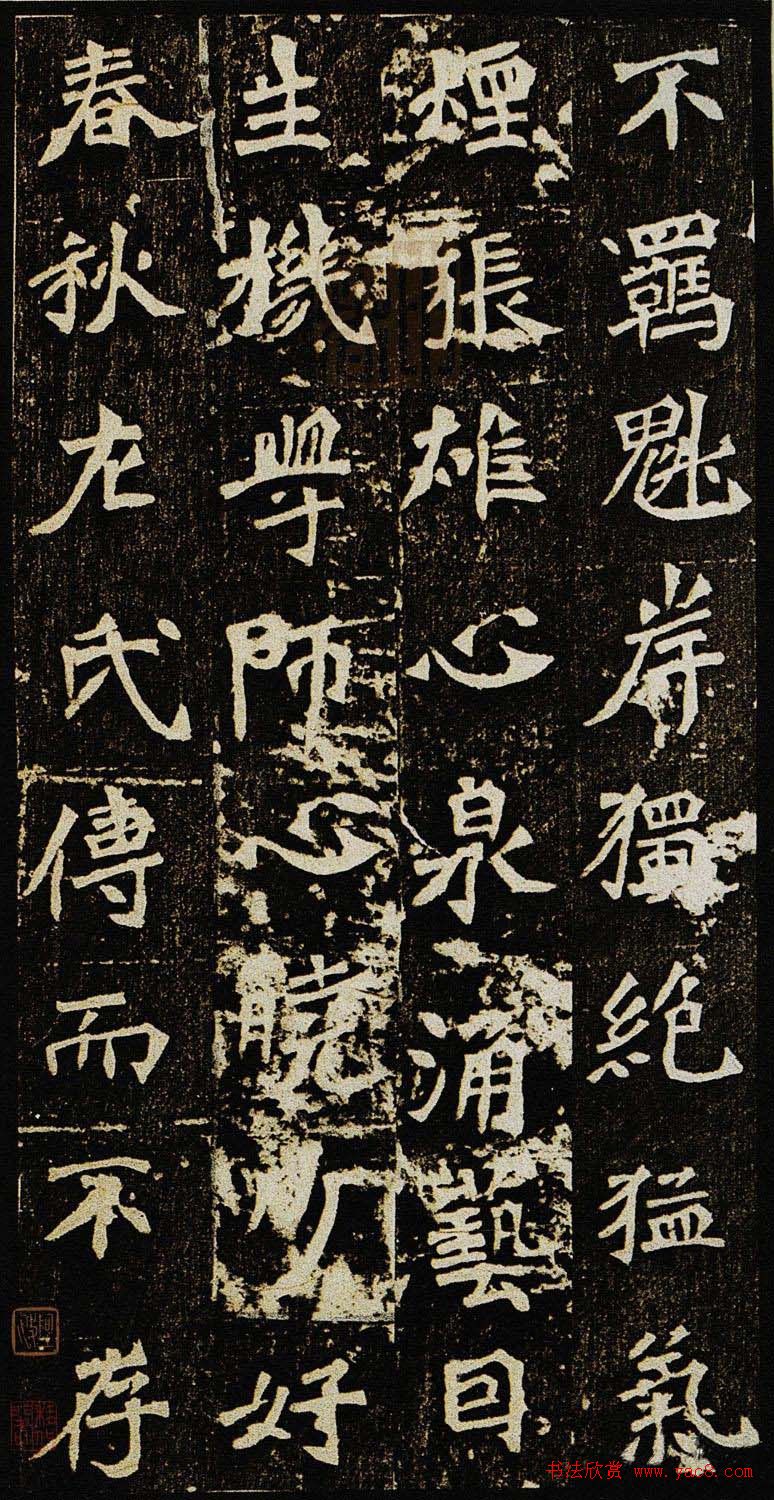 不羈魁岸獨絕猛氣
煙張雄心泉涌藝目
生機學師心曉少好
春秋左氏傳而不存
书法欣赏 www.yac8.com